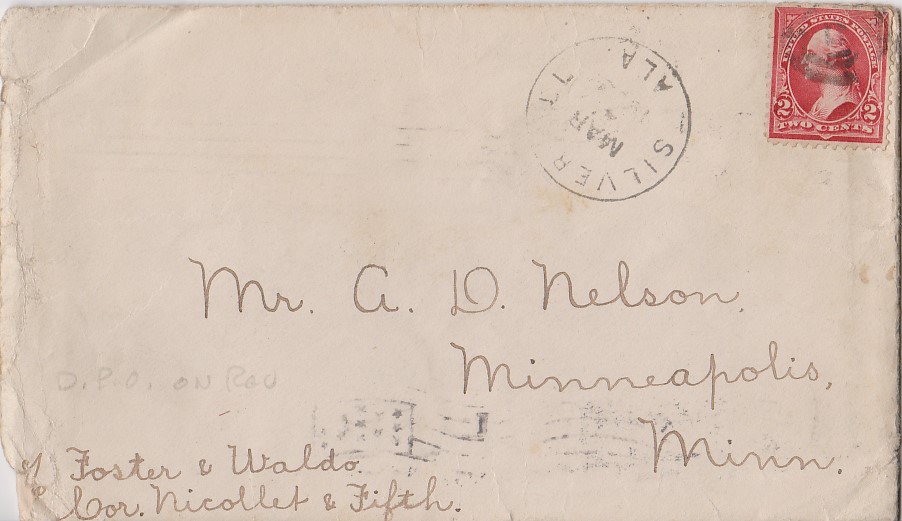 UNITED STATES POSTAGE
2 2
TWO CENTS
SILVER
ALA
MAR
Mr. A. D. Nelson,
Minneapolis,
Minn.
D.P.O. ON
c/o Foster & Waldo.
Cor. Nicollet & Fifth.